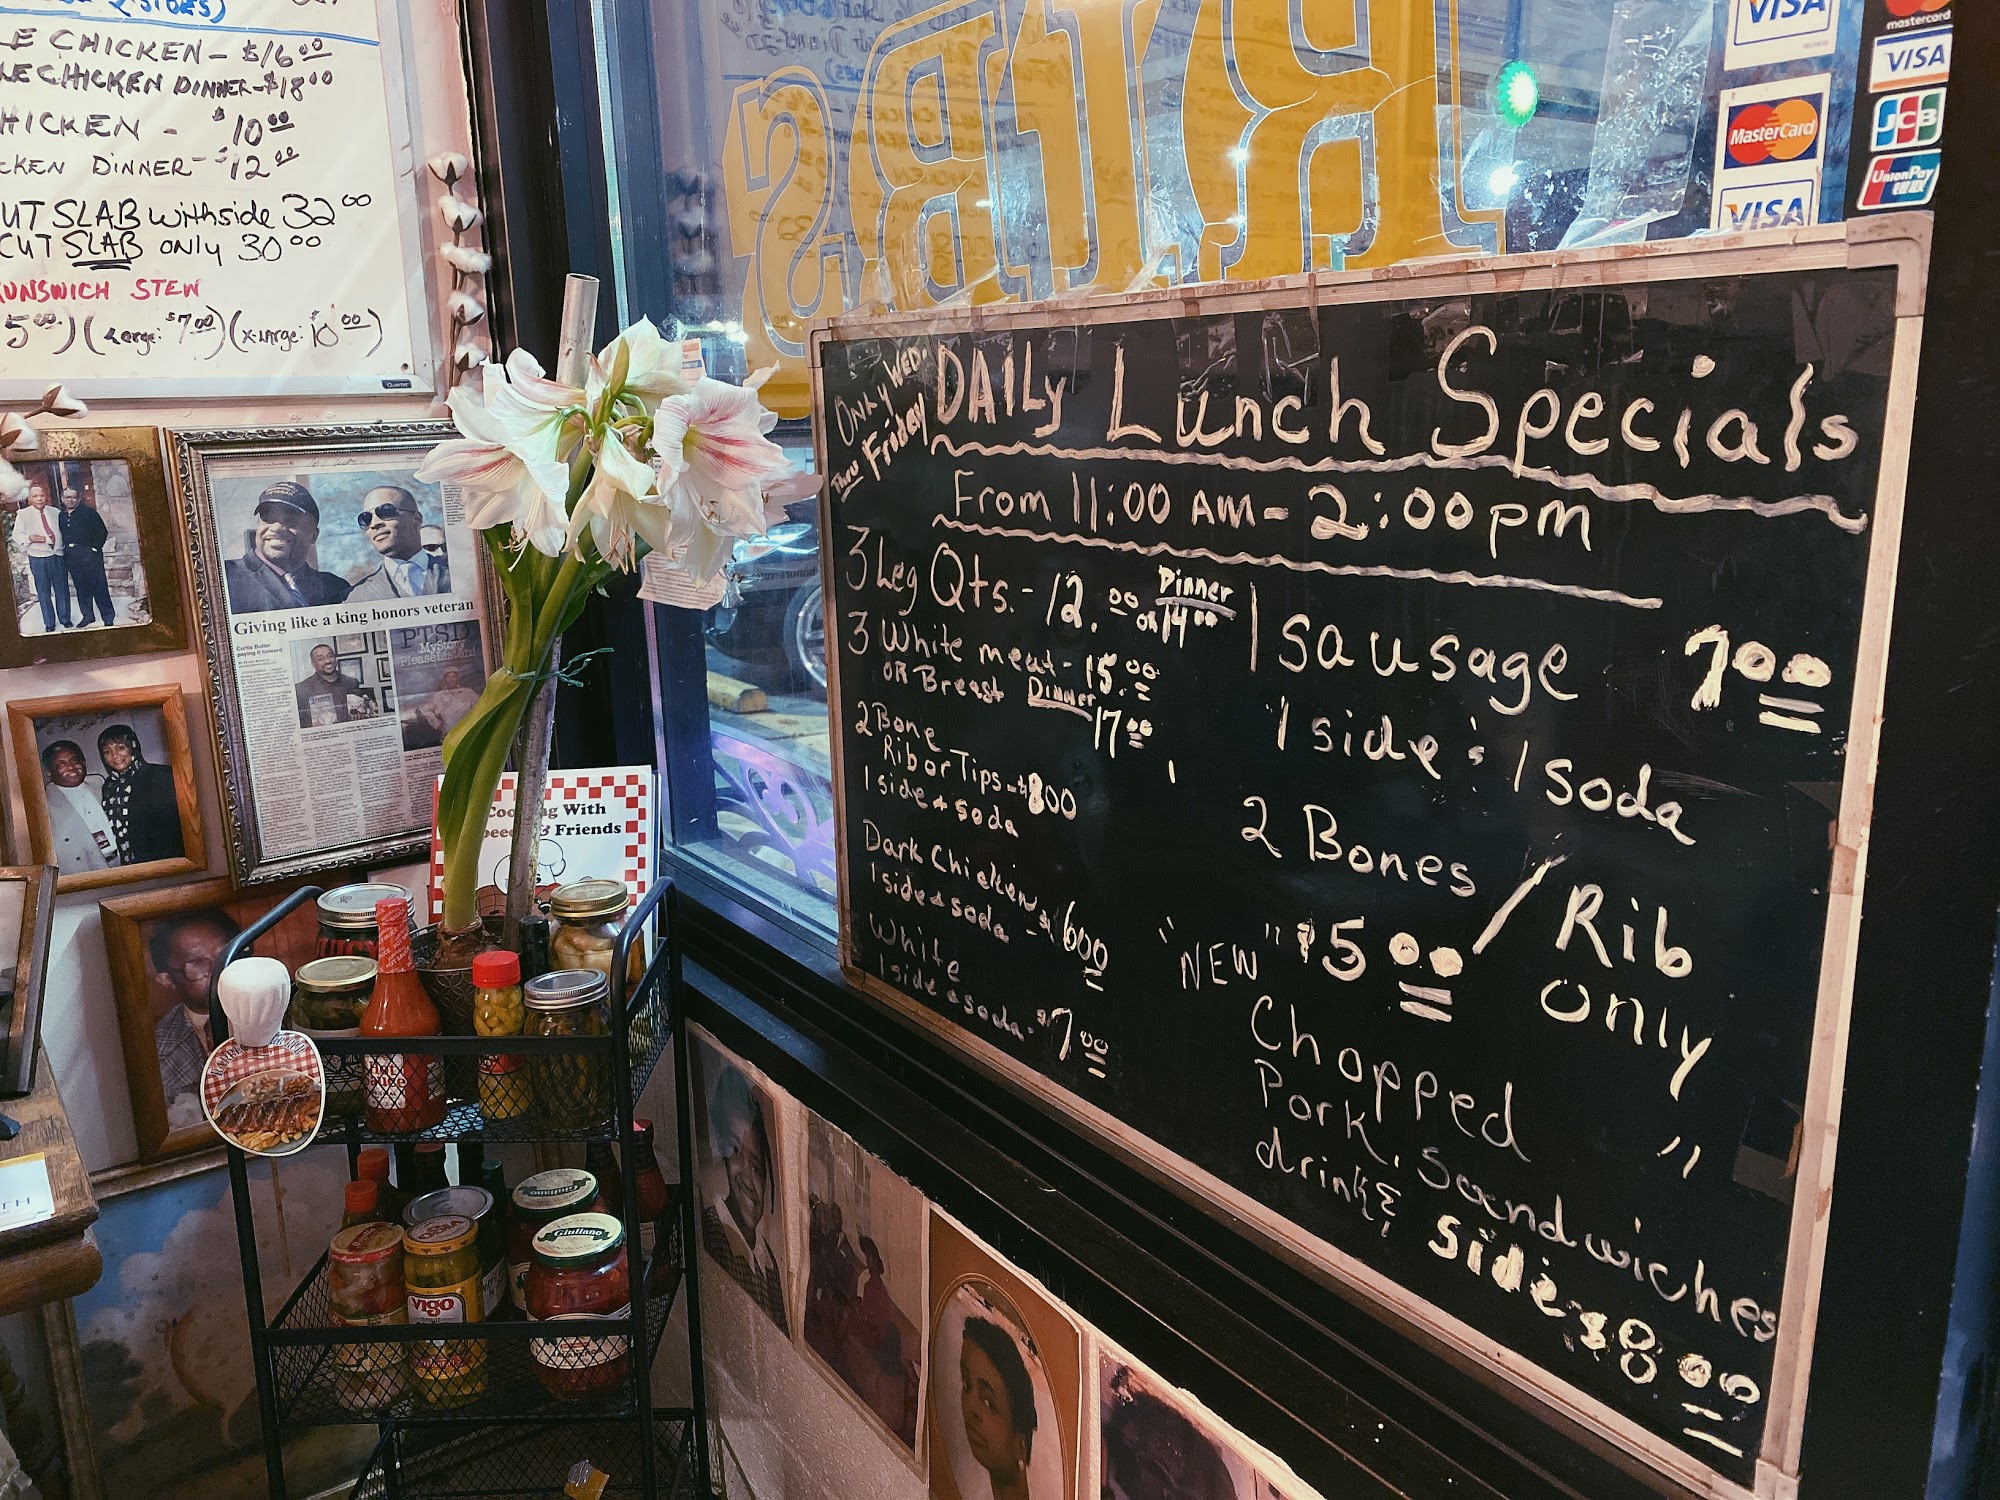 2 SIDES)
LE CHICKEN - $16.00
LE CHICKEN DINNER - $18.00
HICKEN - $10.00
CKEN DINNER - $12.00
UT SLAB with side 32.00
CUT SLAB only 30.00
UNSWICH STEW
5.00) (Large: $7.00) (X-Large: $10.00)
Quartet
RIBS
VISA
MasterCard
VISA
mastercard
VISA
JCB
UnionPay
Only WED.
Thru Friday
DAILy Lunch Specials
From 11:00 AM - 2:00 pm
3 Leg Qts. - 12.00 or Dinner 14.00
3 White meat - 15.00
OR Breast Dinner 17.00
2 Bone
Rib or Tips - $800
1 side + soda
Dark Chicken
1 side + soda - $600
White
1 side + soda - $7.00
1 sausage 7.00
1 side & 1 soda
2 Bones / Rib
$5.00 only
"NEW"
Chopped "
Pork sandwiches
drink &
side $8.00
Giving like a king honors veteran
Curtis Butler
paying it forward
PTSD
My Story
Please Listen!
With
& Friends
Hot
Sauce
VIGO
Giuliano